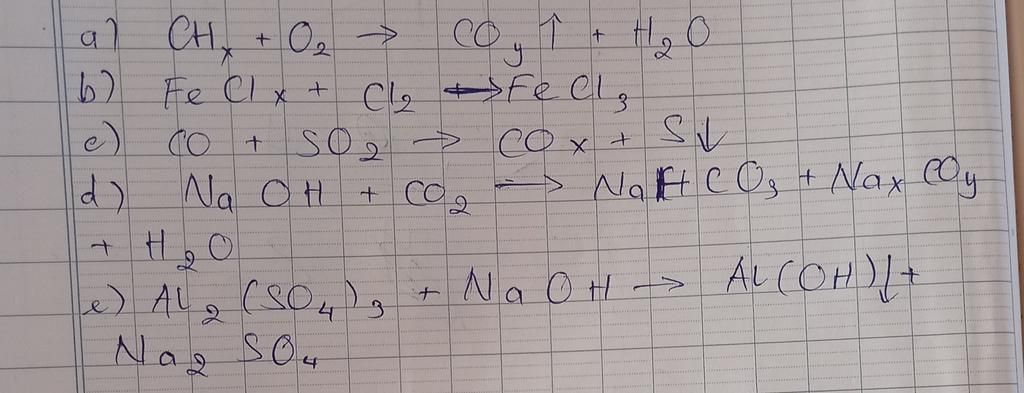 a) CHₓ + O₂ → CO_y ↑ + H₂O
b) FeClₓ + Cl₂ → FeCl₃
c) CO + SO₂ → COₓ + S↓
d) NaOH + CO₂ → NaHCO₃ + NaₓCO_y
+ H₂O
e) Al₂(SO₄)₃ + NaOH → Al(OH)↓ +
Na₂SO₄